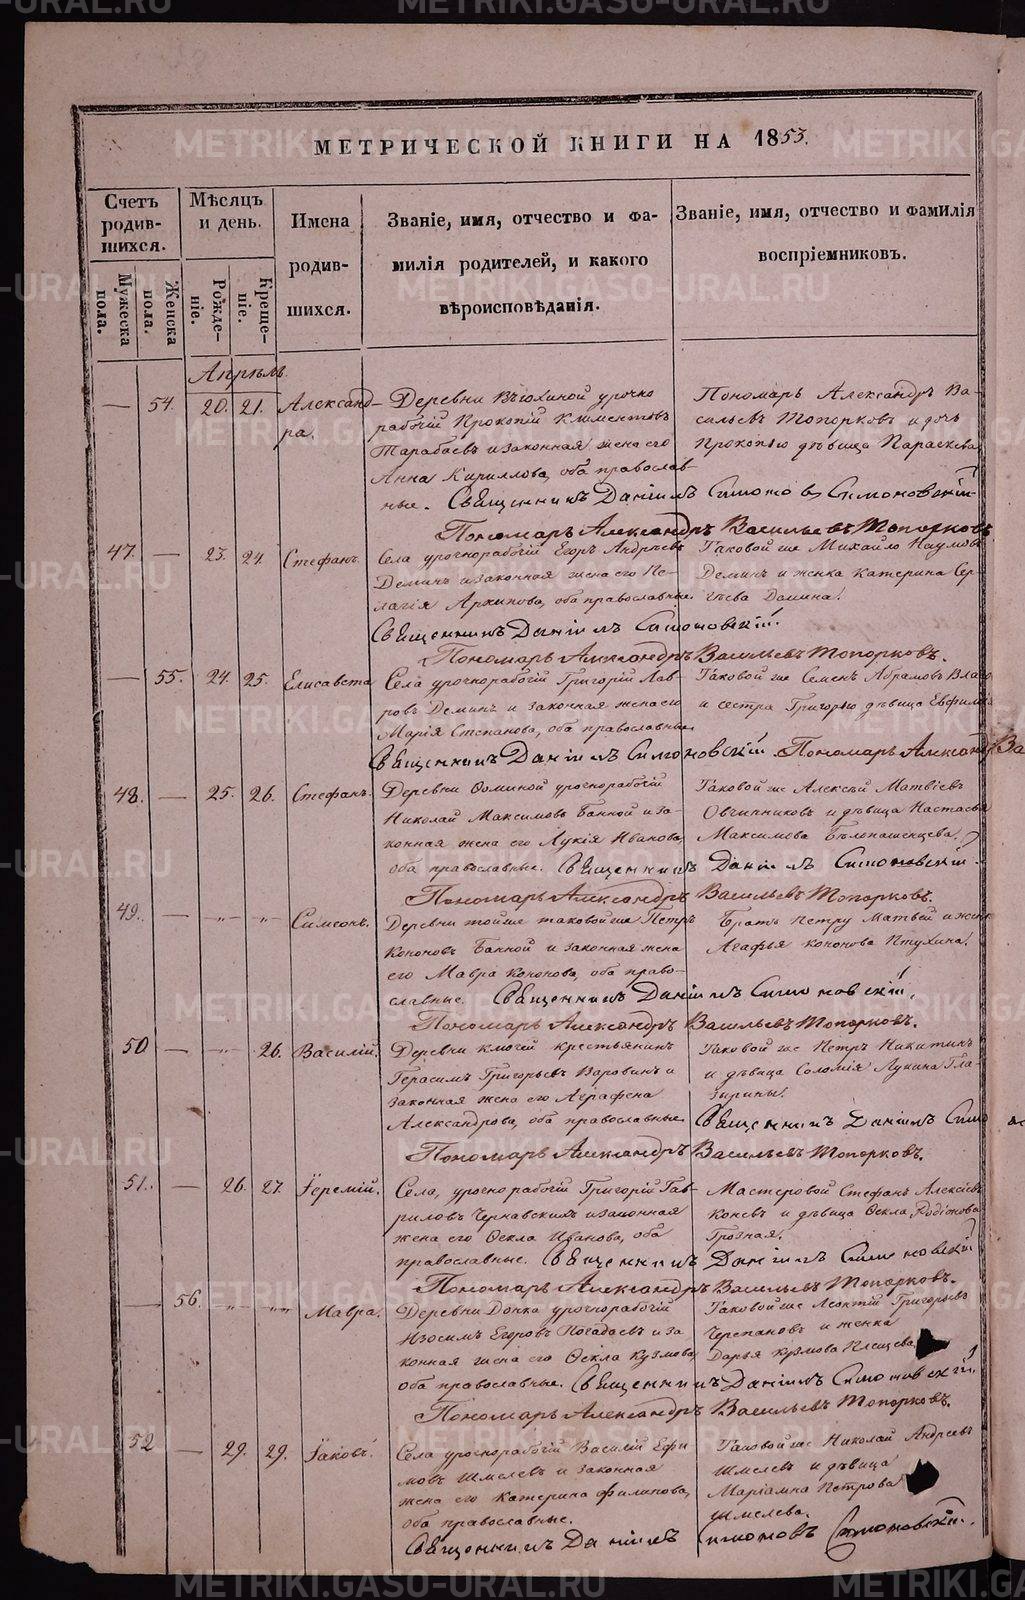 МЕТРИЧЕСКОЙ КНИГИ НА 1853.
Счетъ родив-шихся.
Мужеска пола.
Женска пола.
Мѣсяцъ и день.
Рожде-ніе.
Креще-ніе.
Имена родив-шихся.
Званіе, имя, отчество и фа-
милія родителей, и какого
вѣроисповѣданія.
Званіе, имя, отчество и фамилія
воспріемниковъ.
Апрѣль.
— 54. 20. 21. Александ-
ра.
Деревни Вьюхиной урочно
рабочій Прокопій Климентовъ
Тарабаевъ и законная жена его
Анна Кириллова, оба православ-
ные.
Пономарь Александръ Ва-
сильевъ Топорковъ и дочь
Прокопію дѣвица Параскева
Священникъ Даніилъ Симоновъ Симоновскій
Пономарь Александръ Васильевъ Топорковъ
47. — 23. 24. Стефанъ.
Села урочнорабочій Егоръ Андреевъ
Деминъ и законная жена его Пе-
лагія Архипова, оба православные.
Таковой же Михайло Наумовъ
Деминъ и женка Катерина Сер-
гѣева Демина.
Священникъ Даніилъ Симоновскій.
Пономарь Александръ Васильевъ Топорковъ.
— 55. 24. 25. Елисавета
Села урочнорабочій Григорій Лав-
ровъ Деминъ и законная жена его
Марія Степанова, оба православные
Таковой же Семенъ Абрамовъ
и сестра Григорью дѣвица
Священникъ Даніилъ Симоновскій. Пономарь Александръ Ва
48. — 25. 26. Стефанъ.
Деревни Ѳоминой урочнорабочій
Николай Максимовъ Банной и за-
конная жена его Лукія Иванова,
оба православные.
Таковой же Алексѣй Матвѣевъ
Овчинниковъ и дѣвица Настасья
Максимова Бѣлопашенцева.
Священникъ Даніилъ Симоновскій.
Пономарь Александръ Васильевъ Топорковъ.
49. — -"- -"- Симеонъ.
Деревни тойже таковой же Петръ
Кононовъ Банной и законная жена
его Мавра Кононова, оба право-
славные.
Братъ Петру Матвей и женка
Агафья Кононова Птухина.
Священникъ Даніилъ Симоновскій.
Пономарь Александръ Васильевъ Топорковъ.
50 — -"- 26. Василій.
Деревни Ключей крестьянинъ
Герасимъ Григорьевъ Варовинъ и
законная жена его Аграфена
Александрова, оба православные
Таковой же Петръ Никитинъ
и дѣвица Соломія Лукина Гла-
зырины.
Священникъ Даніилъ Симо
Пономарь Александръ Васильевъ Топорковъ.
51. — 26. 27. Іеремій.
Села, урочно рабочій Григорій Гав-
риловъ Чернавскихъ и законная
жена его Ѳекла Иванова, оба
православные.
Мастеровой Стефанъ Алексѣевъ
Коневъ и дѣвица Ѳекла Родіонова
Грозная.
Священникъ Даніилъ Симоновскій
Пономарь Александръ Васильевъ Топорковъ.
— 56. -"- -"- Мавра.
Деревни Донка урочнорабочій
Изосимъ Егоровъ Погадаевъ и за
конная жена его Ѳекла Кузмова,
оба православные.
Таковой же Леонтій Григорьевъ
Черепановъ и женка
Дарья Кузмова Плещева
Священникъ Даніилъ Симоновскій.
Пономарь Александръ Васильевъ Топорковъ.
52 — 29. 29. Іаковъ.
Села урочнорабочій Василій Ефи-
мовъ Шмелевъ и законная
жена его Катерина Филипова,
оба православные.
Таковой же Николай Андреевъ
Шмелевъ и дѣвица
Маріамна Петрова
Шмелева.
Священникъ Даніилъ Симоновъ Симоновскій.
METRIKI.GASO-URAL.RU